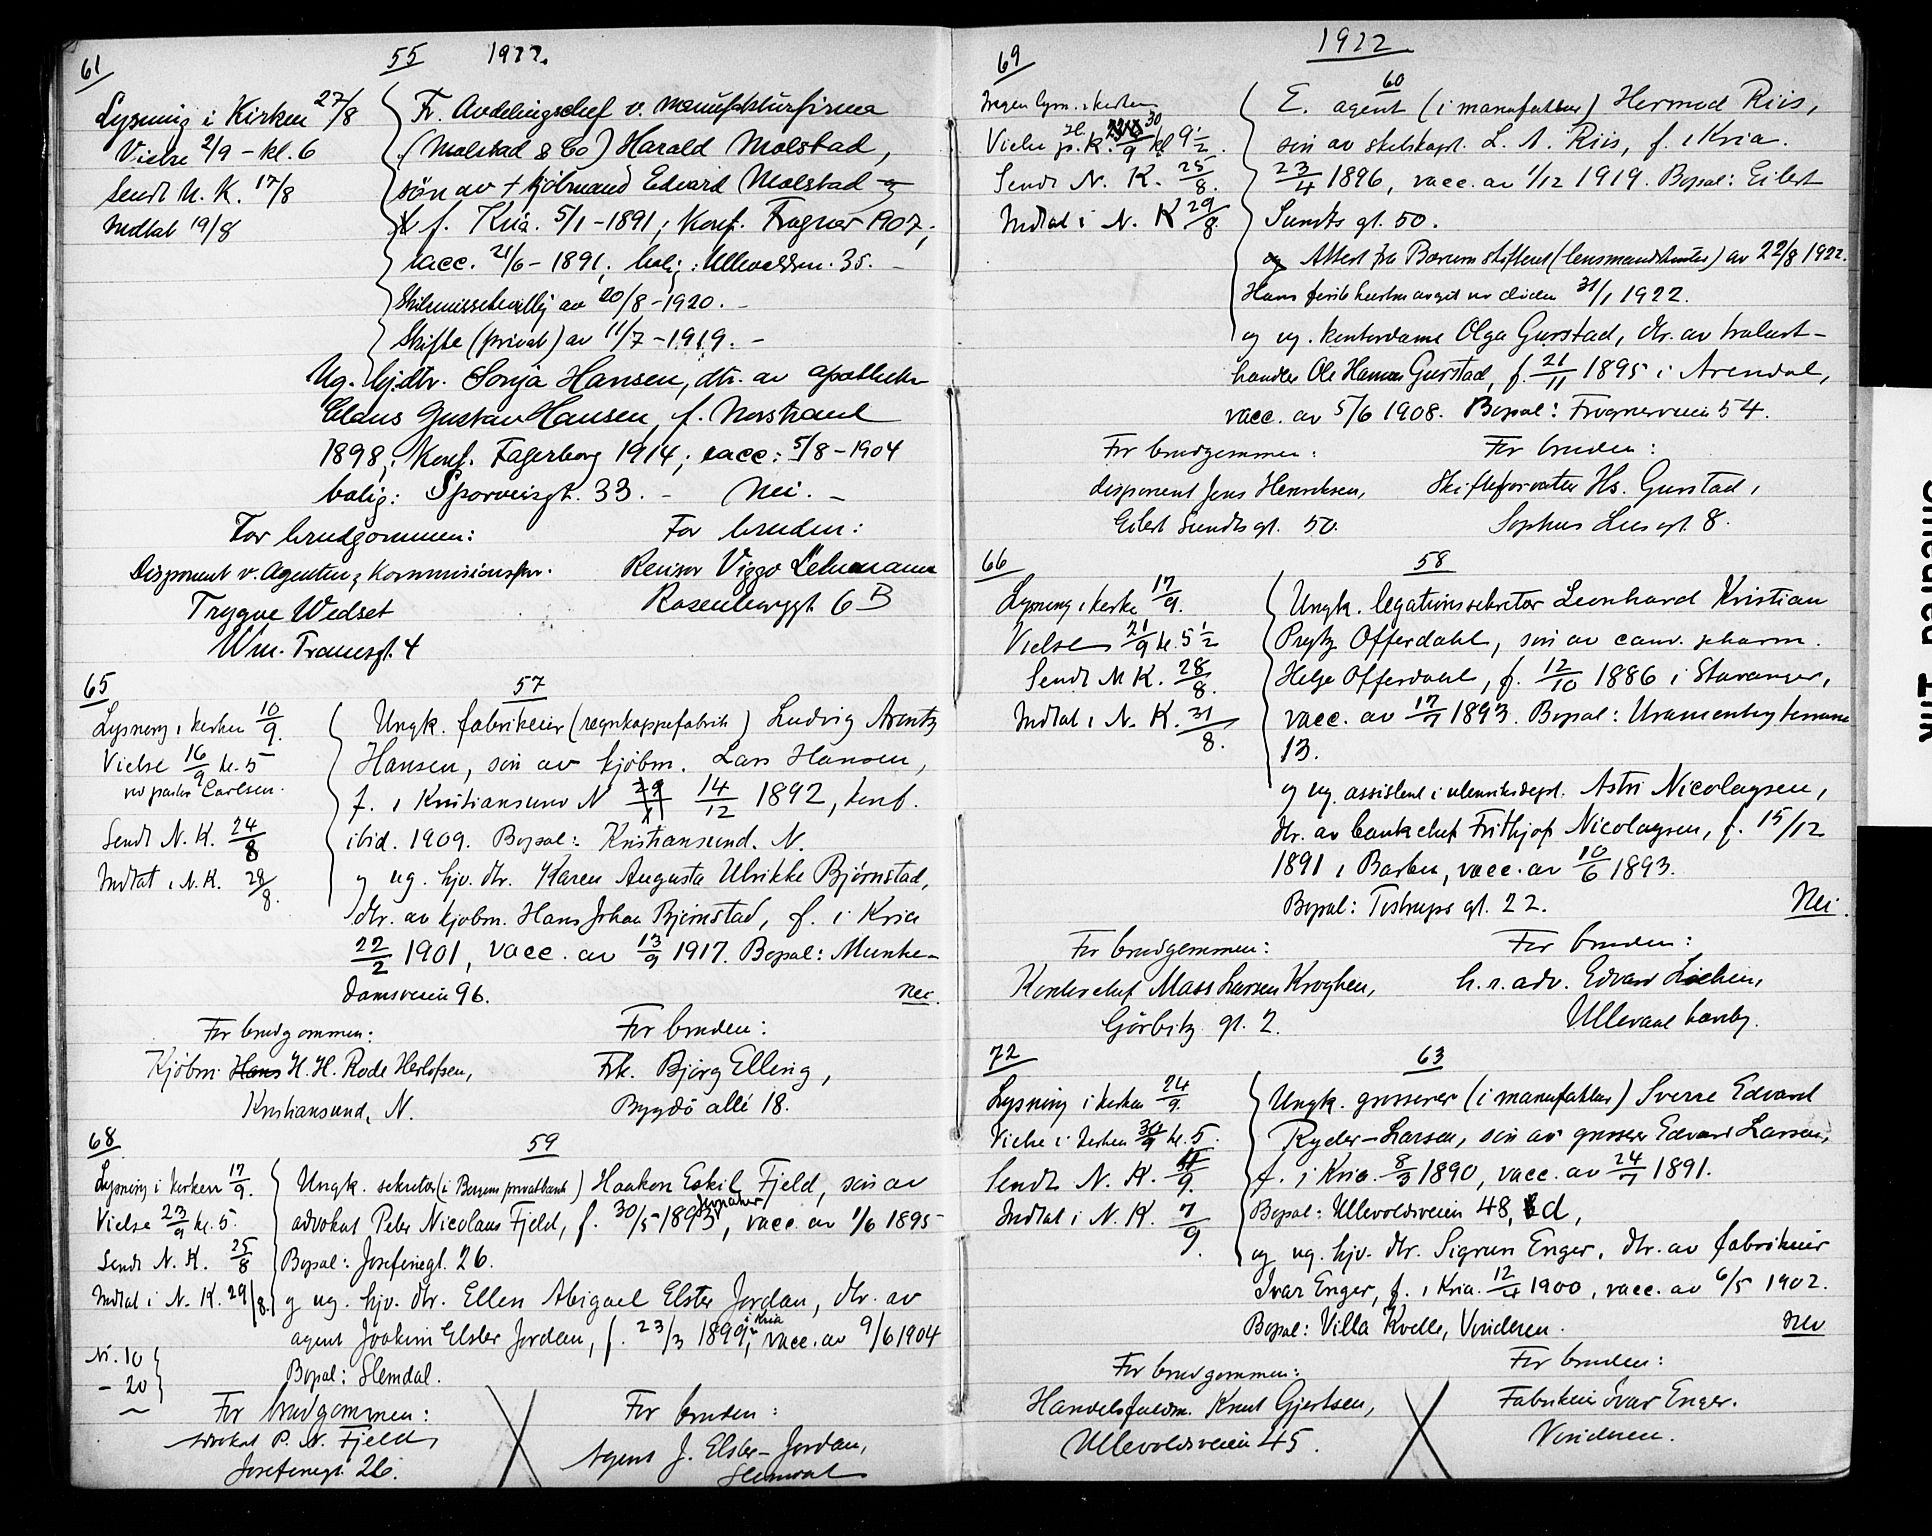 61
55 1922.
Lysning i Kirken 27/8
Vielse 2/9 - kl. 6
Sendt N. K. 17/8
Indtat 19/8
Fr. Avdelingschef v. manufakturfirma
(Molstad & Co) Harald Molstad,
sön av + kjöbmand Edvard Molstad og
f. Kria. 5/1 - 1891; Konf. Frogner 1907;
vacc. 21/6 - 1891; bolig: Ullevoldsvn. 35. -
Skilsmissebevillg av 20/8 - 1920. -
Skifte (privat) av 11/7 - 1919. -
Ug. hj.dtr. Sonja Hansen, dtr. av apotheker
Claus Gustav Hansen, f. Norstrand
1898; Konf. Fagerborg 1914; vacc: 5/8 - 1904
bolig: Sporveisgt. 33. - Nei. -
For brudgommen: For bruden:
Disponent v. Agentur & Kommmisionsfor. Revisor Viggo Lehmann
Trygve Wedset Rosenborggt 6 B
Wm. Tranesgt. 4
65
57
Lysning i kirken 10/9.
Vielse 16/9 kl. 5
ved pastor Carlsen.
Sendt N. K. 24/8
Indtat i N. K. 28/8.
Ungk. fabrikeier (regnkappefabrik) Ludvig Arentz
Hansen, sön av kjöbm. Lars Hansen,
f. i Kristiansund N 14/12 1892, konf.
ibid. 1909. Bopæl: Kristiansund. N.
og ug. hjv. dtr. Karen Augusta Ulrikke Bjørnstad,
dtr. av kjøbm. Hans Johan Bjørnstad, f. i Kria
22/2 1901, vacc. av 13/9 1917. Bopæl: Munke-
damsveien 96. nei.
For brudgommen: For bruden:
Kjöbm. Hans H. H. Rode Herlofsen, Frk. Bjørg Elling,
Kristiansund, N. Bygdö allé 18.
68
59
Lysning i kirken 17/9.
Vielse 23/9 kl. 5.
Sendt N. K. 25/8
Indtat i N. K. 29/8.
Ungk. sekretær (i Bergens privatbank) Haakon Eskil Fjeld, sön av
advokat Peter Nicolaus Fjeld, f. 30/5 1893, vacc. av 1/6 1895
Bopæl: Josefinegt. 26.
og ug. hjv. dtr. Ellen Abigael Elster Jordan, dtr. av
i Kria
agent Joakim Elster Jordan, f. 23/3 1899, vacc. av 9/6 1904
Bopæl: Slemdal.
Nr. 10
- 20
For brudgommen: For bruden:
Advokat P. N. Fjeld, Agent J. Elster-Jordan,
Josefinegt. 26. Slemdal
69
1922
60
Ingen lysn. i kirken
Vielse 30/9 kl 9 1/2.
Sendt N. K. 25/8.
Indtat i N. K 29/8.
E. agent (i manufaktur) Hermod Riis,
sön av skibskapt. L. A. Riis, f. i Kria.
23/4 1896, vacc. av 1/12 1919. Bopæl: Eilert
Sundts gt. 50.
Attest fra Bærum skifteret (lensmandskontor) av 22/8 1922.
Hans første hustru avgik ved døden 31/1 1922.
og ug. kontordame Olga Gurstad, dtr. av trælast-
handler Ole Hansen Gurstad, f. 21/11 1895 i Arendal,
vacc. av 5/6 1908. Bopæl: Frognerveien 54.
For brudgommen: For bruden:
disponent Jens Henriksen, Skifteforvalter Hs. Gurstad,
Eilert Sundts gt. 50. Sophus Lies gt. 8.
66
58
Lysning i kirke 17/9.
Vielse 21/9 kl. 5 1/2
Sendt N K. 28/8.
Indtat i N. K. 31/8.
Ungk. legationssekretær Leonhard Kristian
Prytz Offerdahl, sön av cand. pharm.
Helge Offerdahl, f. 12/10 1886 i Stavanger,
vacc. av 17/7 1893. Bopæl: Uranienborg terrasse
13.
og ug. assistent i utenriksdept. Astri Nicolaysen,
dtr. av bankchef Frithjof Nicolaysen, f. 15/12
1891 i Barbu, vacc. av 10/6 1893.
Bopæl: Tostrups gt. 22. Nei.
For brudgommen: For bruden:
Kontorchef Mass Larsen Kroghen, h. r. adv. Edvard Liehen,
Görbitz gt. 2. Ullevaal haveby.
72
63
Lysning i kirken 24/9.
Vielse i kirken 30/9 kl. 5.
Sendt N. K. /9.
Indtat i N. K. 7/9.
Ungk. grosserer (i manufaktur) Sverre Edvard
Ryder-Larsen, sön av grosserer Edvard Larsen,
f. i Kria. 8/3 1890, vacc. av 24/7 1891.
Bopæl: Ullevoldsveien 48, d,
og ug. hjv. dtr. Sigrun Enger, dtr. av fabrikeier
Ivar Enger, f. i Kria. 12/4 1900, vacc. av 6/5 1902.
Bopæl: Villa Kvelle, Vinderen. nei
For brudgommen: For bruden:
Handelsfuldm. Knut Gjertsen, Fabrikeier Ivar Enger.
Ullevoldsveien 45. Vinderen.